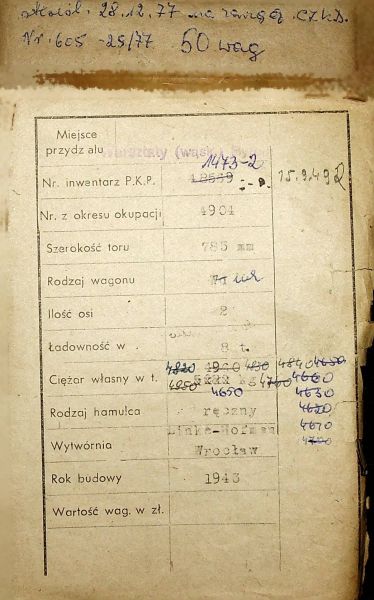 28.12.77 na
Nr. 605-25/77 50 wag
Miejsce
przydzału Warsztaty (wąsk.)
1473-2
Nr. inwentarz P.K.P. 18569 15.9.49
Nr. z okresu okupacji 4904
Szerokość toru 785 mm
Rodzaj wagonu
Ilość osi 2
Ładowność w . 8 t.
4820 4960 4830 4840 4650
Ciężar własny w t. 4850 4700 4660
4650 4630
Rodzaj hamulca ręczny 4620
Linke-Hofman 4610
Wytwórnia Wrocław 4700
Rok budowy 1943
Wartość wag. w zł.